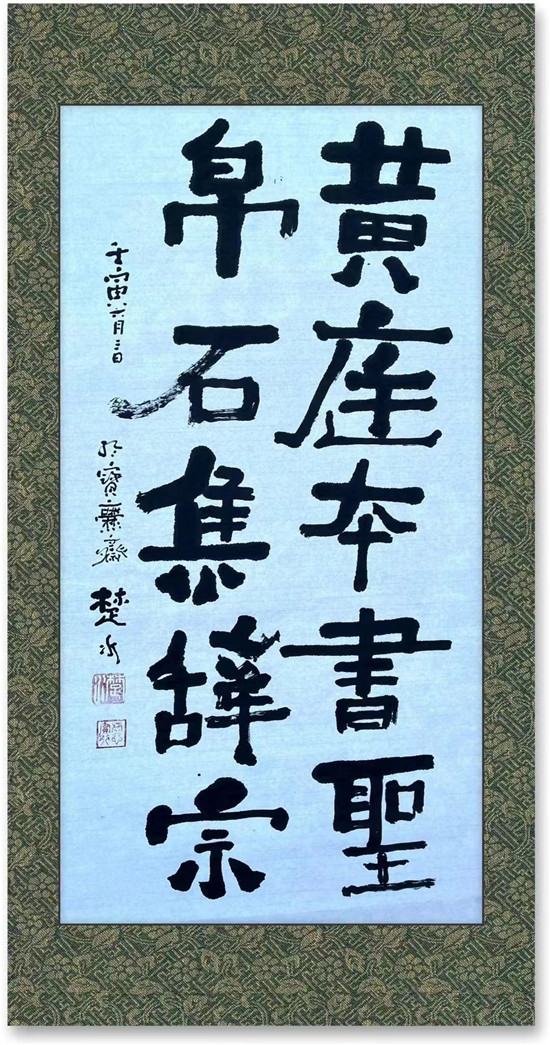 黄庭本書聖
帛石集辞宗
壬寅六月三日 於寶爨齋 楚水